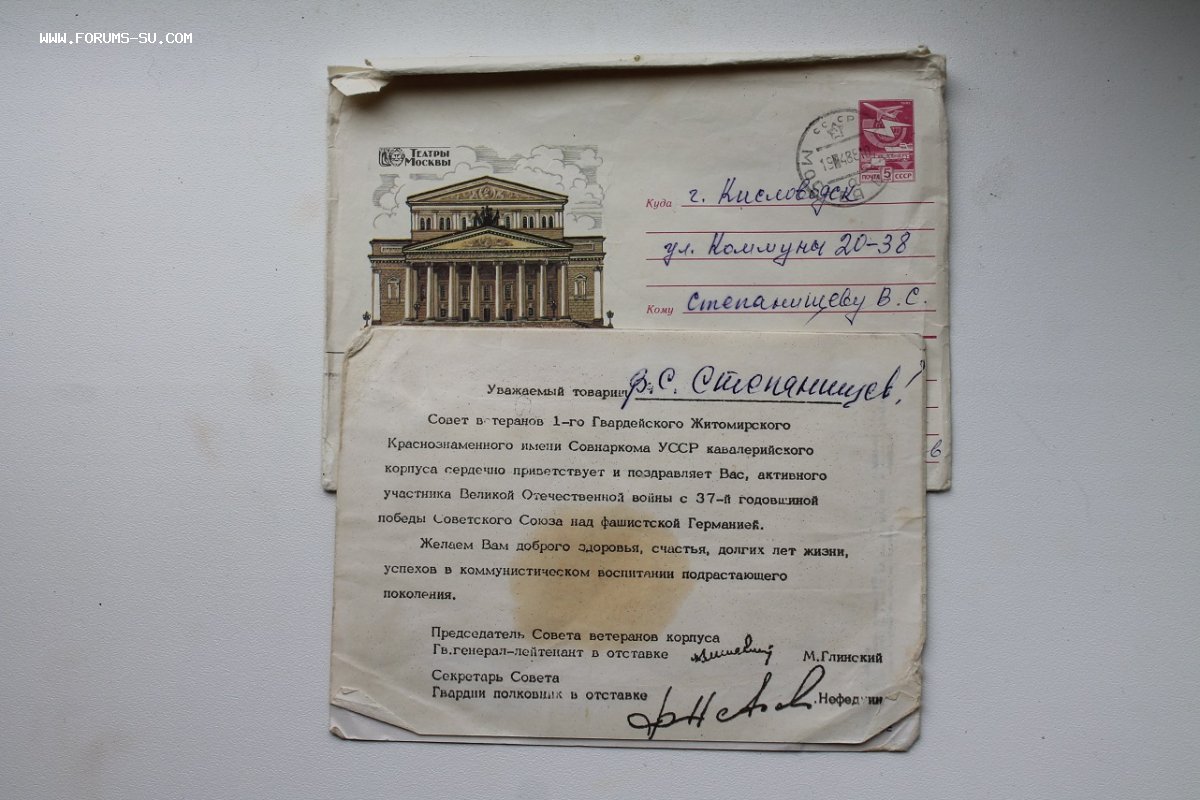 WWW.FORUMS-SU.COM
ТЕАТРЫ
МОСКВЫ
СССР
ПОЧТА 5 СССР
Куда г. Кисловодск
ул. Коммуны 20-38
Кому Степанищеву В.С.
Уважаемый товарищ В.С. Степанищев!
Совет ветеранов 1-го Гвардейского Житомирского
Краснознаменного имени Совнаркома УССР кавалерийского
корпуса сердечно приветствует и поздравляет Вас, активного
участника Великой Отечественной войны с 37-й годовщиной
победы Советского Союза над фашистской Германией.
Желаем Вам доброго здоровья, счастья, долгих лет жизни,
успехов в коммунистическом воспитании подрастающего
поколения.
Председатель Совета ветеранов корпуса
Гв.генерал-лейтенант в отставке М.Глинский
Секретарь Совета
Гвардии полковник в отставке .Нефедкин